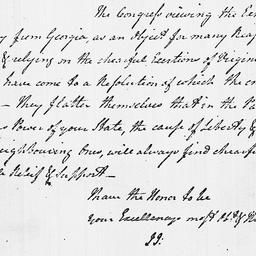 The Congress viewing the
y from Georgia, as an Object for many
& relying on the chearful Exertions of Virginia
have come to a Resolution of which the
- They flatter themselves that in the
Power of your State, the cause of Liberty &
ghbouring Ones, will always find chearful
Relief & Support -
I have the Honor to be
your Excellencys most